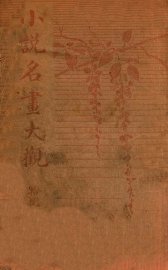 小說名畫大觀